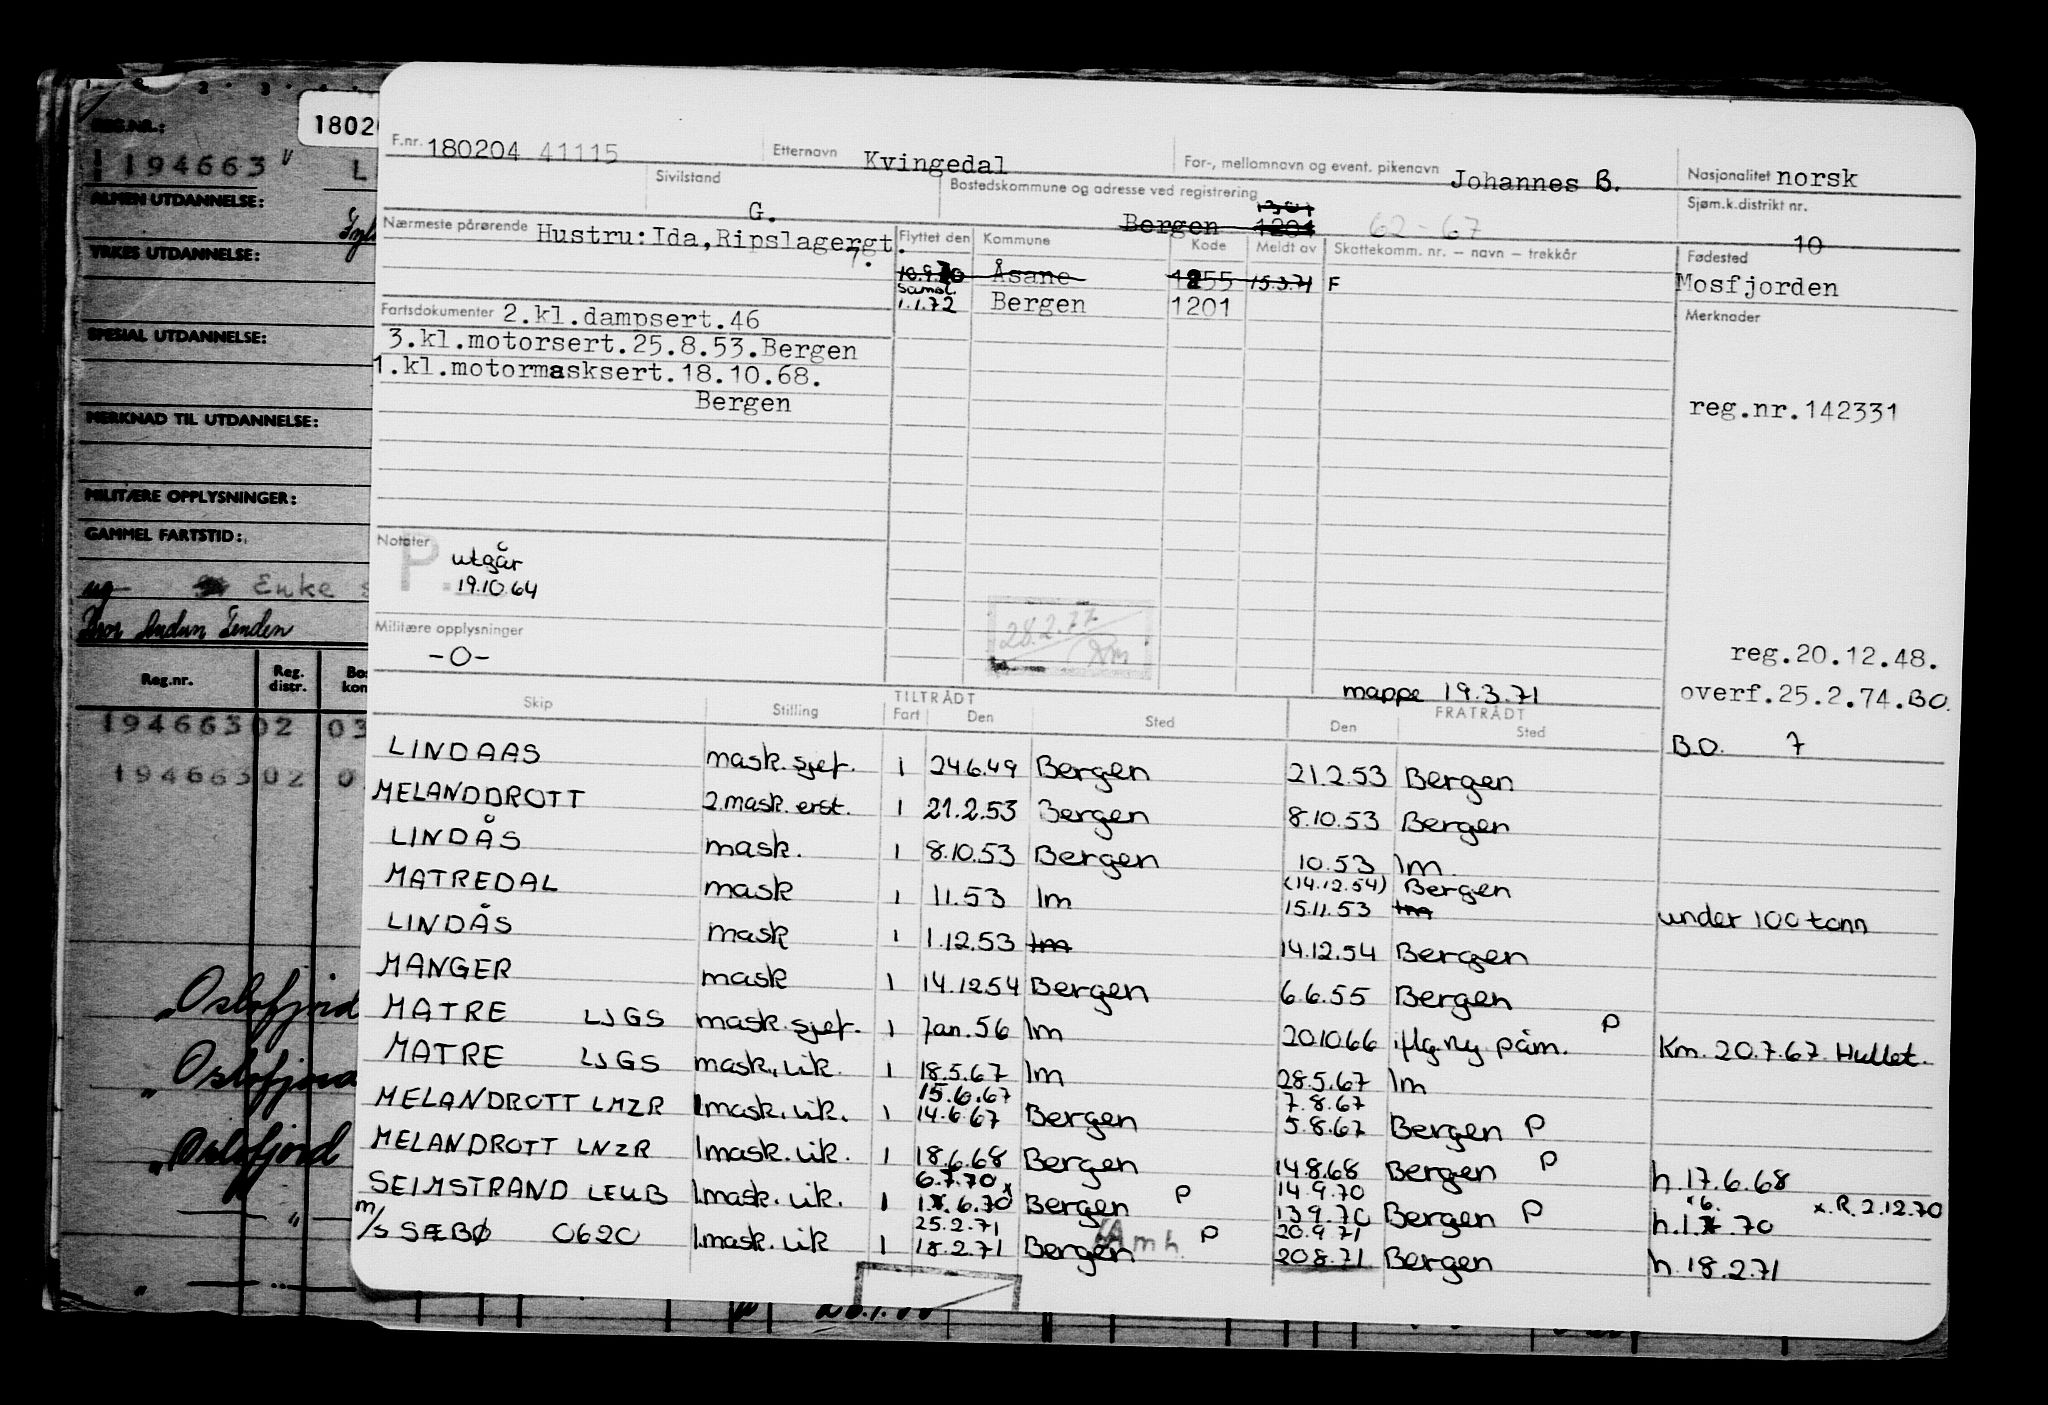 F.nr. 180204 41115 Etternavn Kvingedal For-, mellomnavn og event. pikenavn Johannes B. Nasjonalitet norsk
Sivilstand G. Bostedskommune og adresse ved registrering Bergen 1301 1201 62-67 Sjøm.k.distrikt nr. 10
Nærmeste pårørende Hustru: Ida, Ripslagergt. 7. Flyttet den Kommune Kode Meldt av Skattekomm. nr. – navn – trekkår Fødested
10.9.70 Åsane 1255 15.3.71 F Mosfjorden
Saml. 1.1.72 Bergen 1201 Merknader
Fartsdokumenter 2.kl.dampsert.46
3.kl.motorsert.25.8.53.Bergen
1.kl.motormasksert.18.10.68.
Bergen
reg.nr.142331
Notater P. utgår
19.10.64
28.2.77
Militære opplysninger
-0-
reg.20.12.48.
mappe 19.3.71 overf.25.2.74.BO.
Skip Stilling TILTRÅDT Fart Den Sted FRATRÅDT Den Sted
BO. 7
LINDAAS mask.sjef. 1 24.6.49 Bergen 21.2.53 Bergen
MELANDDROTT 2.mask.erst. 1 21.2.53 Bergen 8.10.53 Bergen
LINDÅS mask. 1 8.10.53 Bergen 10.53 lm.
(14.12.54) Bergen
MATREDAL mask 1 11.53 lm 15.11.53 lm under 100 tonn
LINDÅS mask 1 1.12.53 lm 14.12.54 Bergen
MANGER mask 1 14.12.54 Bergen 6.6.55 Bergen
MATRE LJGS mask.sjef. 1 Jan.56 lm 20.10.66 iflg ny påm. P Km. 20.7.67. Hullet.
MATRE LJGS mask.vik. 1 18.5.67 lm 28.5.67 lm
15.6.67 7.8.67
MELANDROTT LMZR 1mask.vik. 1 14.6.67 Bergen 5.8.67 Bergen P
MELANDROTT LNZR 1mask.vik. 1 18.6.68 Bergen 14.8.68 Bergen P h.17.6.68
6.7.70 14.9.70
SEIMSTRAND LEUB 1.mask.vik. 1 1.6.70 x Bergen P 13.9.70 Bergen P h.1.6.70 x.R.2.12.70
25.2.71 20.9.71
m/s SÆBØ 0620 1.mask.vik 1 18.2.71 Bergen Amh. P 20.8.71 Bergen h 18.2.71
REG.NR.:
1194663 V L
ALMEN UTDANNELSE:
YRKES UTDANNELSE:
SPESIAL UTDANNELSE:
MERKNAD TIL UTDANNELSE:
MILITÆRE OPPLYSNINGER:
GAMMEL FARTSTID:
ug Enke
Reg.nr. Reg. distr.
194663 02 03
194663 02 0
Oslofjord
" Oslofjord
" Oslofjord
— " —